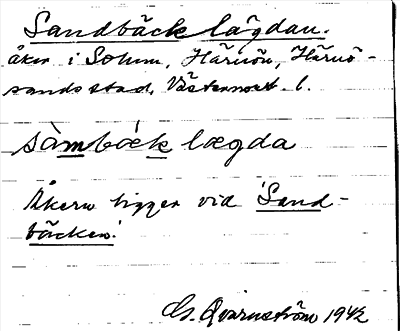 Sandbäck lägdan.
åker i Solum, Härnön, Härnö-
sands stad, Västernorrl. l.
sàmbæ̀k lægda
Åkern ligger vid 'Sand-
bäcken'.
G. Qvarnström 1942